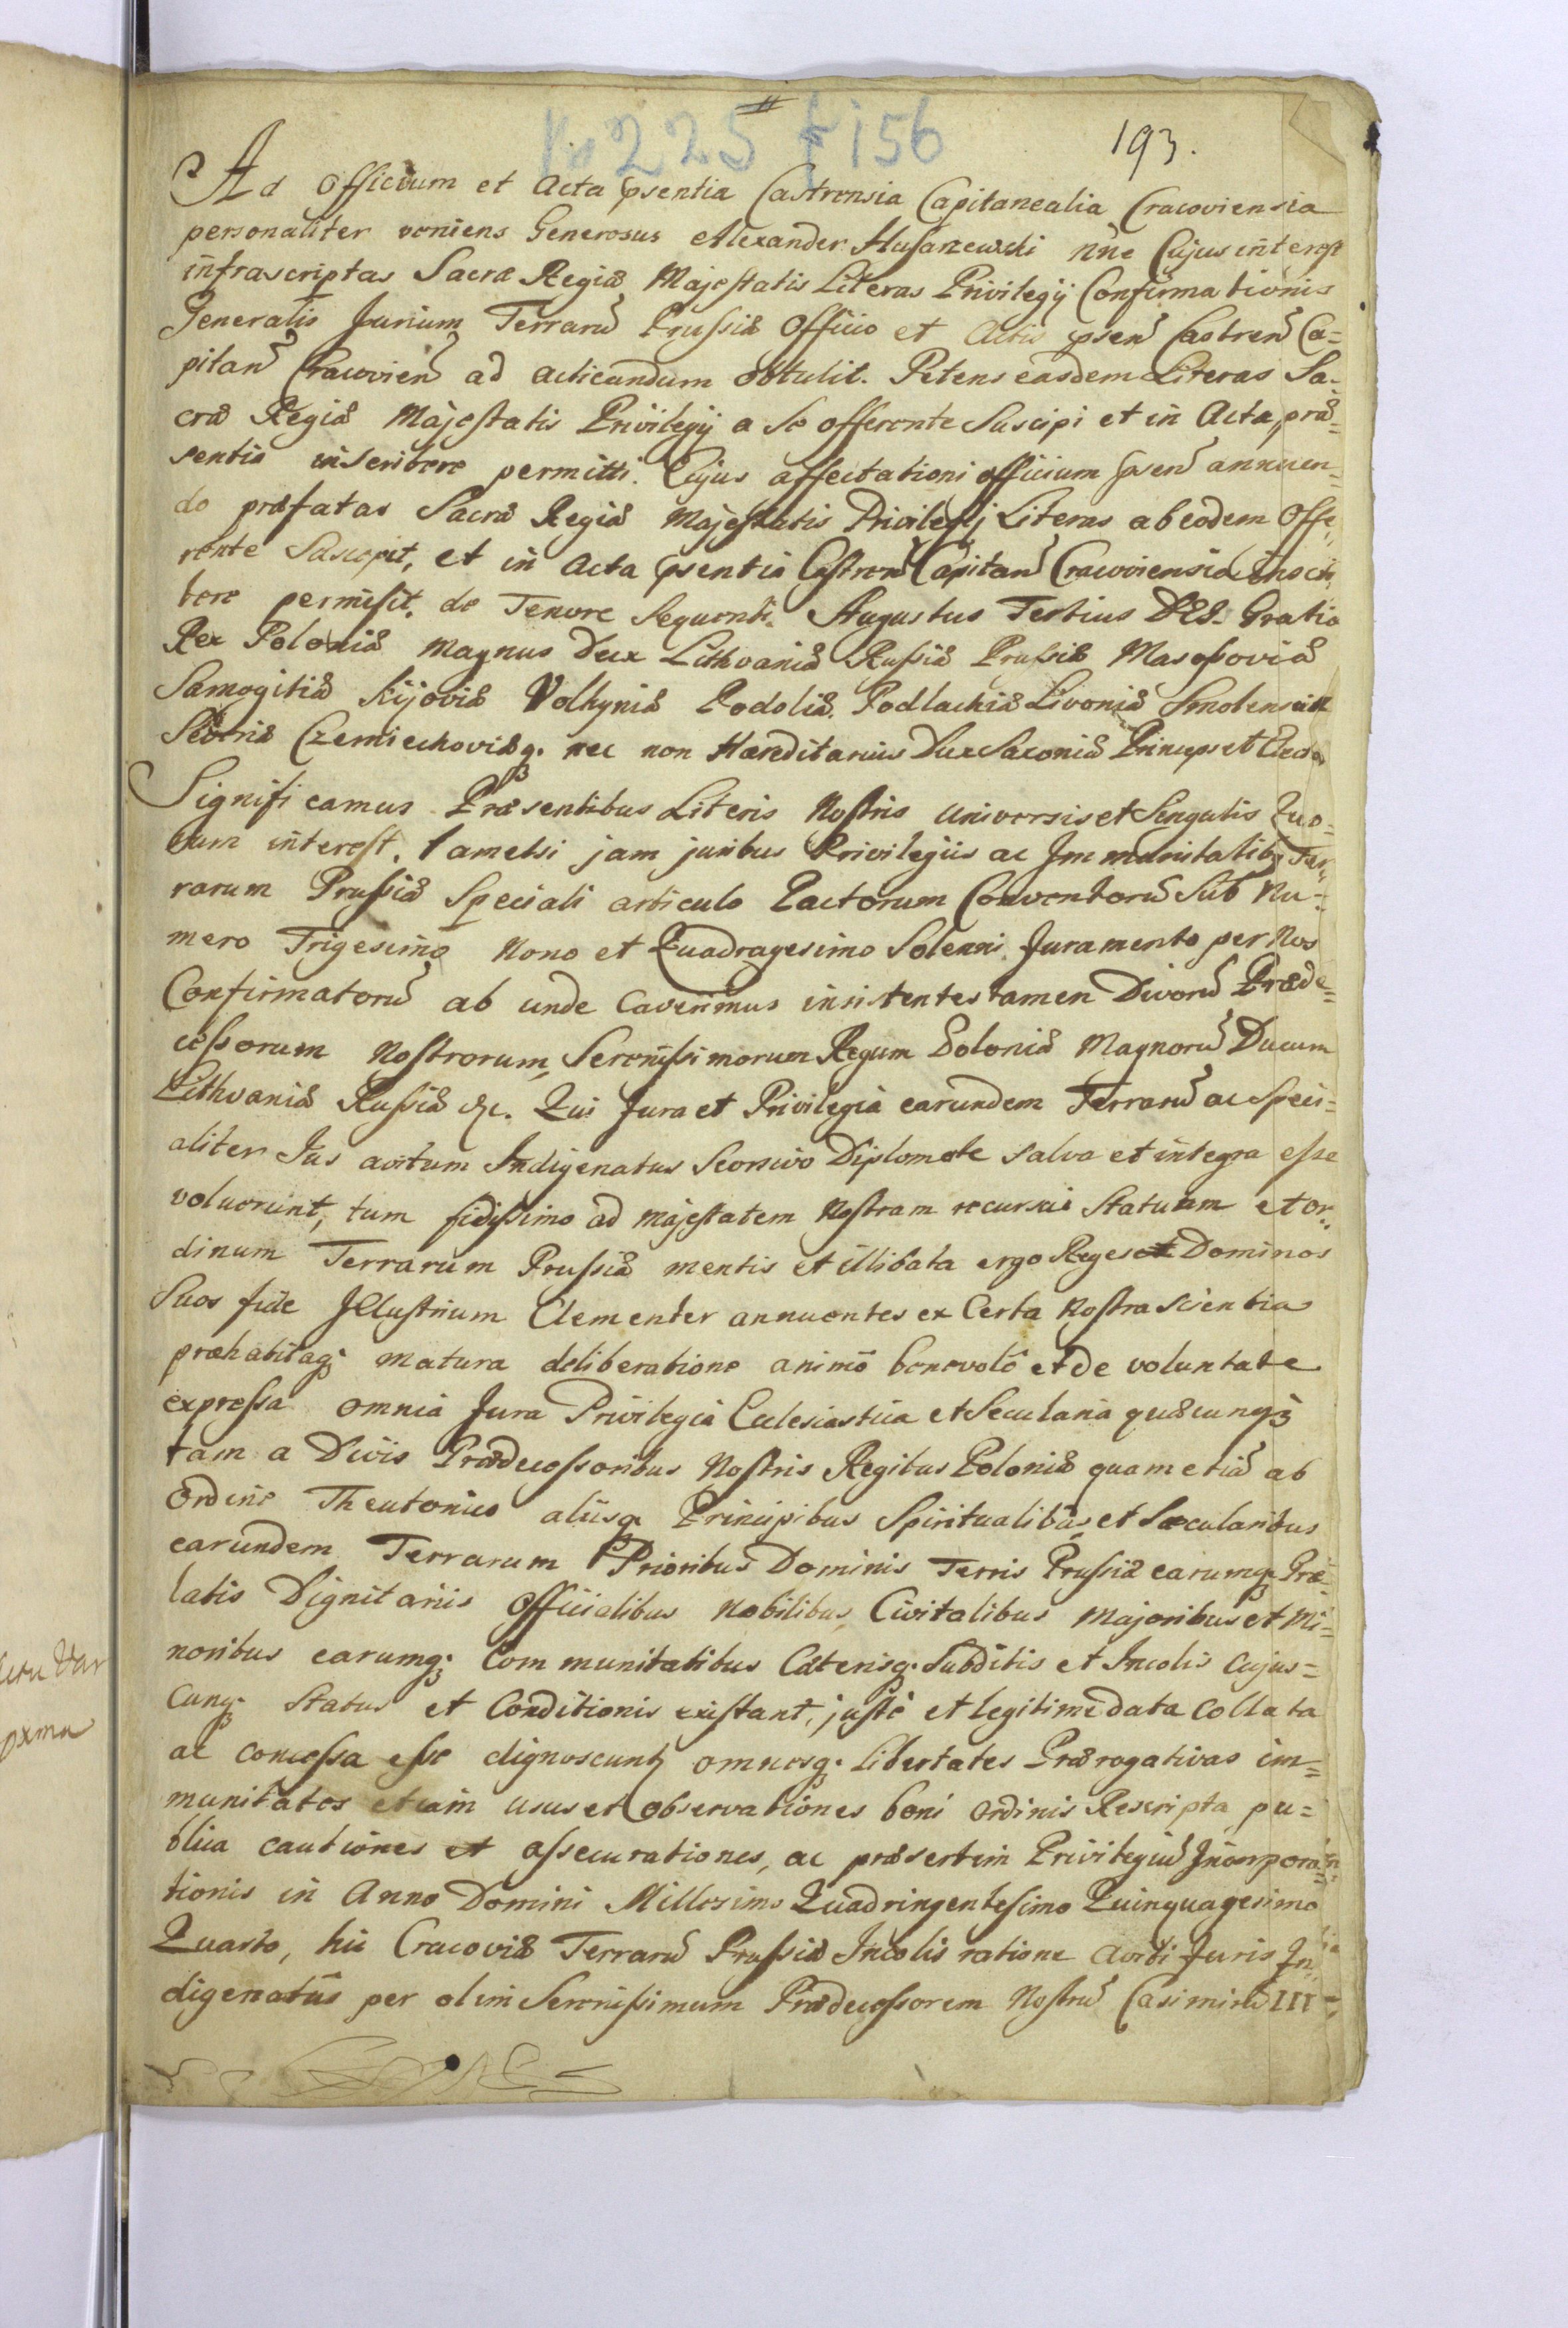 No 225 f 156
193.
Ad Officium et Acta psentia Castrensia Capitanealia Cracoviensia
personaliter veniens Generosus Alexander nne Cujus interest
infrascriptas Sacræ Regiæ Majestatis Literas Privilegij Confirmationis
Generalis Jurium Terrarũ Prussiæ Officio et Actis psen̄ Castren̄ Ca=
pitan̄ Cracovien̄ ad acticandum obtulit. Petens easdem Literas Sa=
cræ Regiæ Majestatis Privilegij a Se offerente Suscipi et in Acta præ=
sentia inscribere permitti. Cujus affectationi officium psen̄ annuen=
do præfatas Sacræ Regiæ Majestatis Privilegij Literas ab eodem Offe=
rente Suscepit, et in Acta psentia Castren̄ Capitan̄ Cracoviensia Inscri
bere permisit, de Tenore Sequenti. Augustus Tertius DEI. Gratia
Rex Poloniæ Magnus Dux Lithvaniæ Russiæ Prussiæ Masoviæ
Samogitiæ Kijoviæ Volhyniæ Podoliæ. Podlachiæ Livoniæ Smolensciæ
Severiæ Czerniechoviæq. nec non Hæreditarius Dux Saxoniæ Princeps et Elector
Significamus Præsentibus Literis Nostris universis et Singulis Quo=
rum interest. Tametsi jam juribus Privilegiis ac Immunitatibq Ter=
rarum Prussiæ Speciali articulo Pactorum Conventorũ Sub Nu=
mero Trigesimo Nono et Quadragesimo Solenni Juramento per Nos
Confirmatorũ ab unde Caverimus insistentes tamen Divorũ Præde=
cessorum Nostrorum, Serenissimorum Regum Poloniæ Magnorũ Ducum
Lithvaniæ Russiæ &c. Qui Jura et Privilegia earundem Terrarũ ac Speci=
aliter Jus avitum Indigenatus Seorsivo Diplomate salva et integra esse
voluerunt, tum fidissimo ad Majestatem Nostram recursui Statuum et or=
dinum Terrarum Prussiæ mentis et illibata ergo Reges et Dominos
Suos fide Illustrium Clementer annuentes ex Certa Nostra scientia
præhabitaq; matura deliberatione animo benevolo et de voluntate
expressa omnia Jura Privilegia Ecclesiastica et Secularia quæcunq;
tam a Divis Prædecessoribus Nostris Regibus Poloniæ quam etiã ab
Ordine Theutonico aliisq. Principibus Spiritualibus et Sæcularibus
earundem Terrarum Prioribus Dominis Terris Prussiæ earumq. Præ=
latis Dignitariis Officialibus Nobilibus, Civitatibus Majoribus et Mi=
noribus earumq; Communitatibus Cæterisq. Subditis et Incolis cujus=
cunq. Status et Conditionis existant, juste et legitime data Collata
ac concessa esse dignoscuntq omnesq. Libertates Prærogativas im=
munitates etiam usus et Observationes boni ordinis Rescripta pu=
blica cautiones et assecurationes, ac præsertim Privilegiũ Incorpora=
tionis in Anno Domini Millesimo Quadringentesimo Quinquagesimo
Quarto, hic Cracoviæ Terrarũ Prussiæ Incolis ratione aviti Juris In=
digenatûs per olim Serenissimum Prædecessorem Nostrũ Casimirũ III